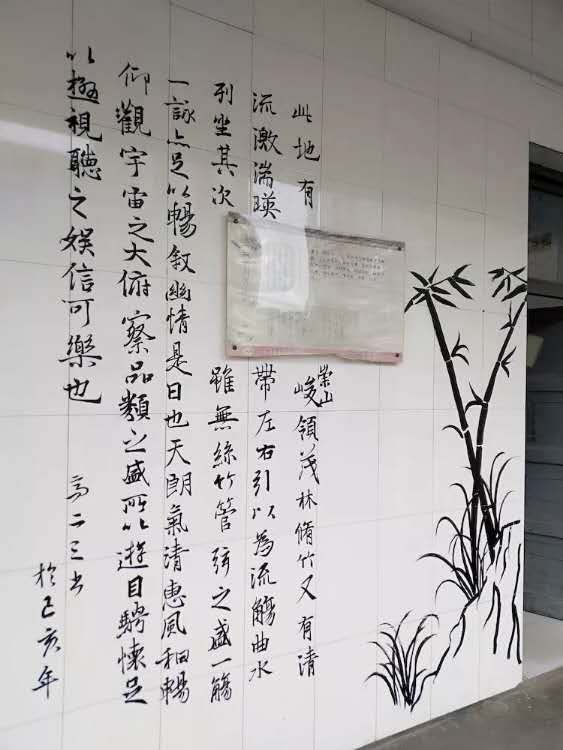 此地有崇山峻領茂林脩竹又有清
流激湍暎帶左右引以為流觴曲水
列坐其次雖無絲竹管弦之盛一觴
一詠亦足以暢敘幽情是日也天朗氣清惠風和暢
仰觀宇宙之大俯察品類之盛所以遊目騁懷足
以極視聽之娛信可樂也
高二三书
於己亥年